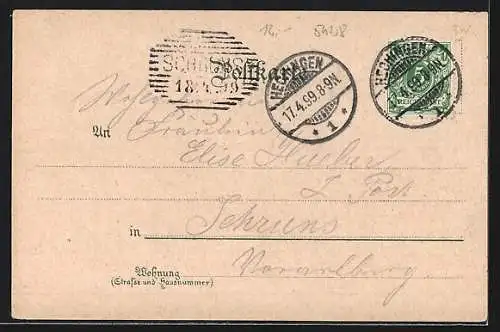 12.- 5428
SCHRUNS
18.4.99
Postkarte
HECHINGEN
17.4.99.8-9N.
* 1 *
HECHINGEN
Wohlgeb
An Fräulein
Elise Hueber
z. Post
in Schruns
Vorarlberg
Wohnung
(Strasse und Hausnummer)